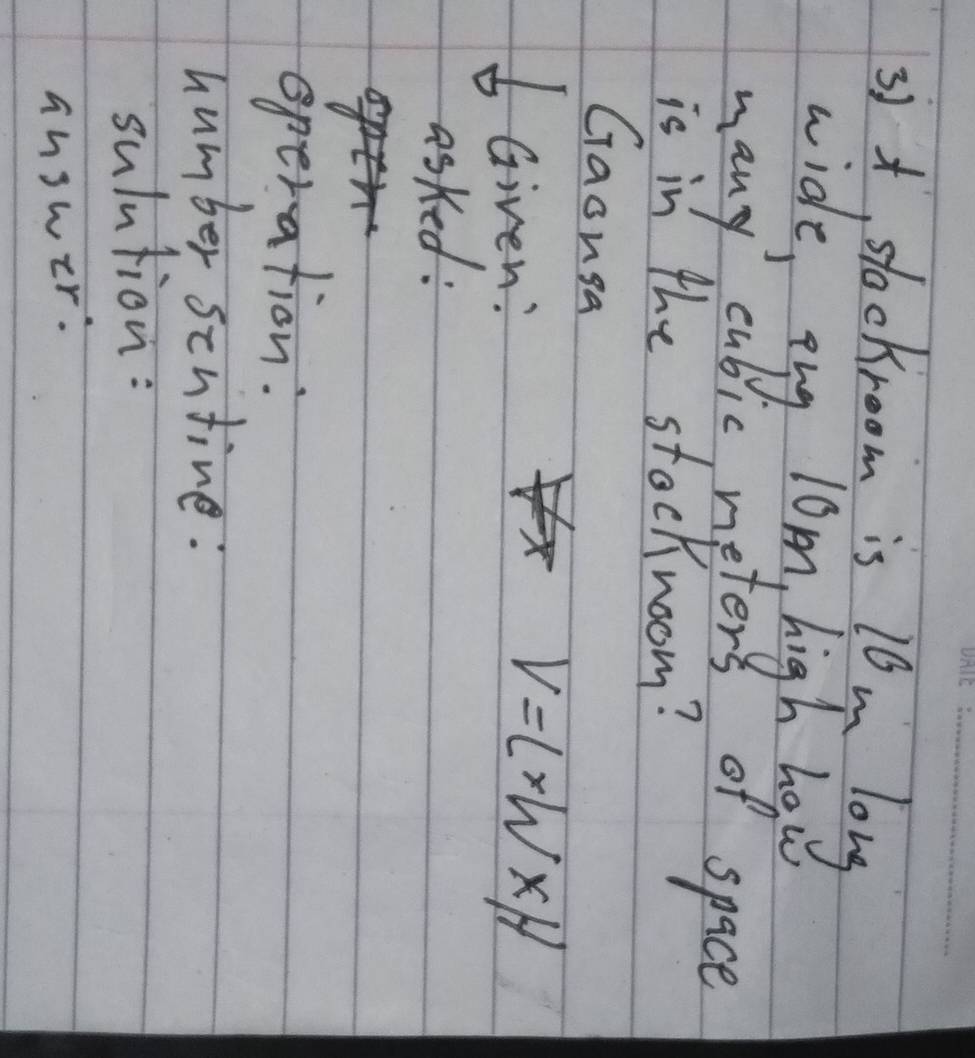 3) A stockroom is 10 m long
wide, and 10m, high how
many cubic meters of space
is in the stocknoom?
Gaonsa
Given: V=L×W×H
asked:
Operation:
number sentine:
sulution:
answer:
DATE :